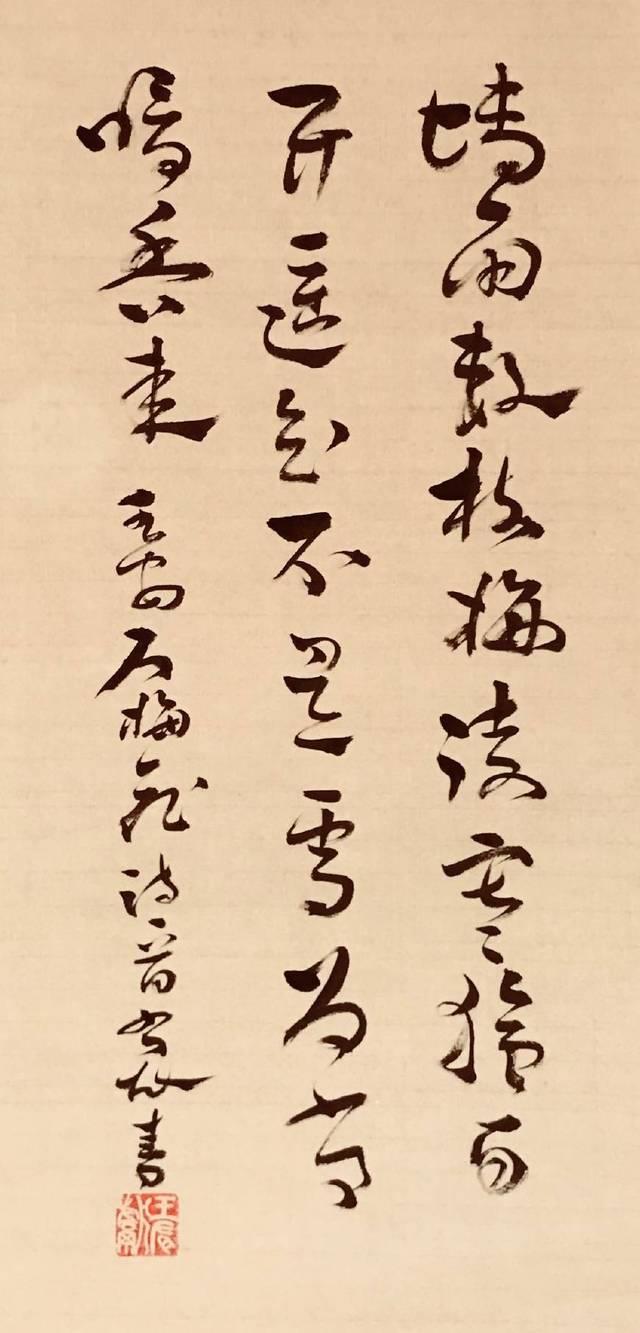 墙角数枝梅凌寒独自
开遥知不是雪为有
暗香来 王安石梅花诗一首 書